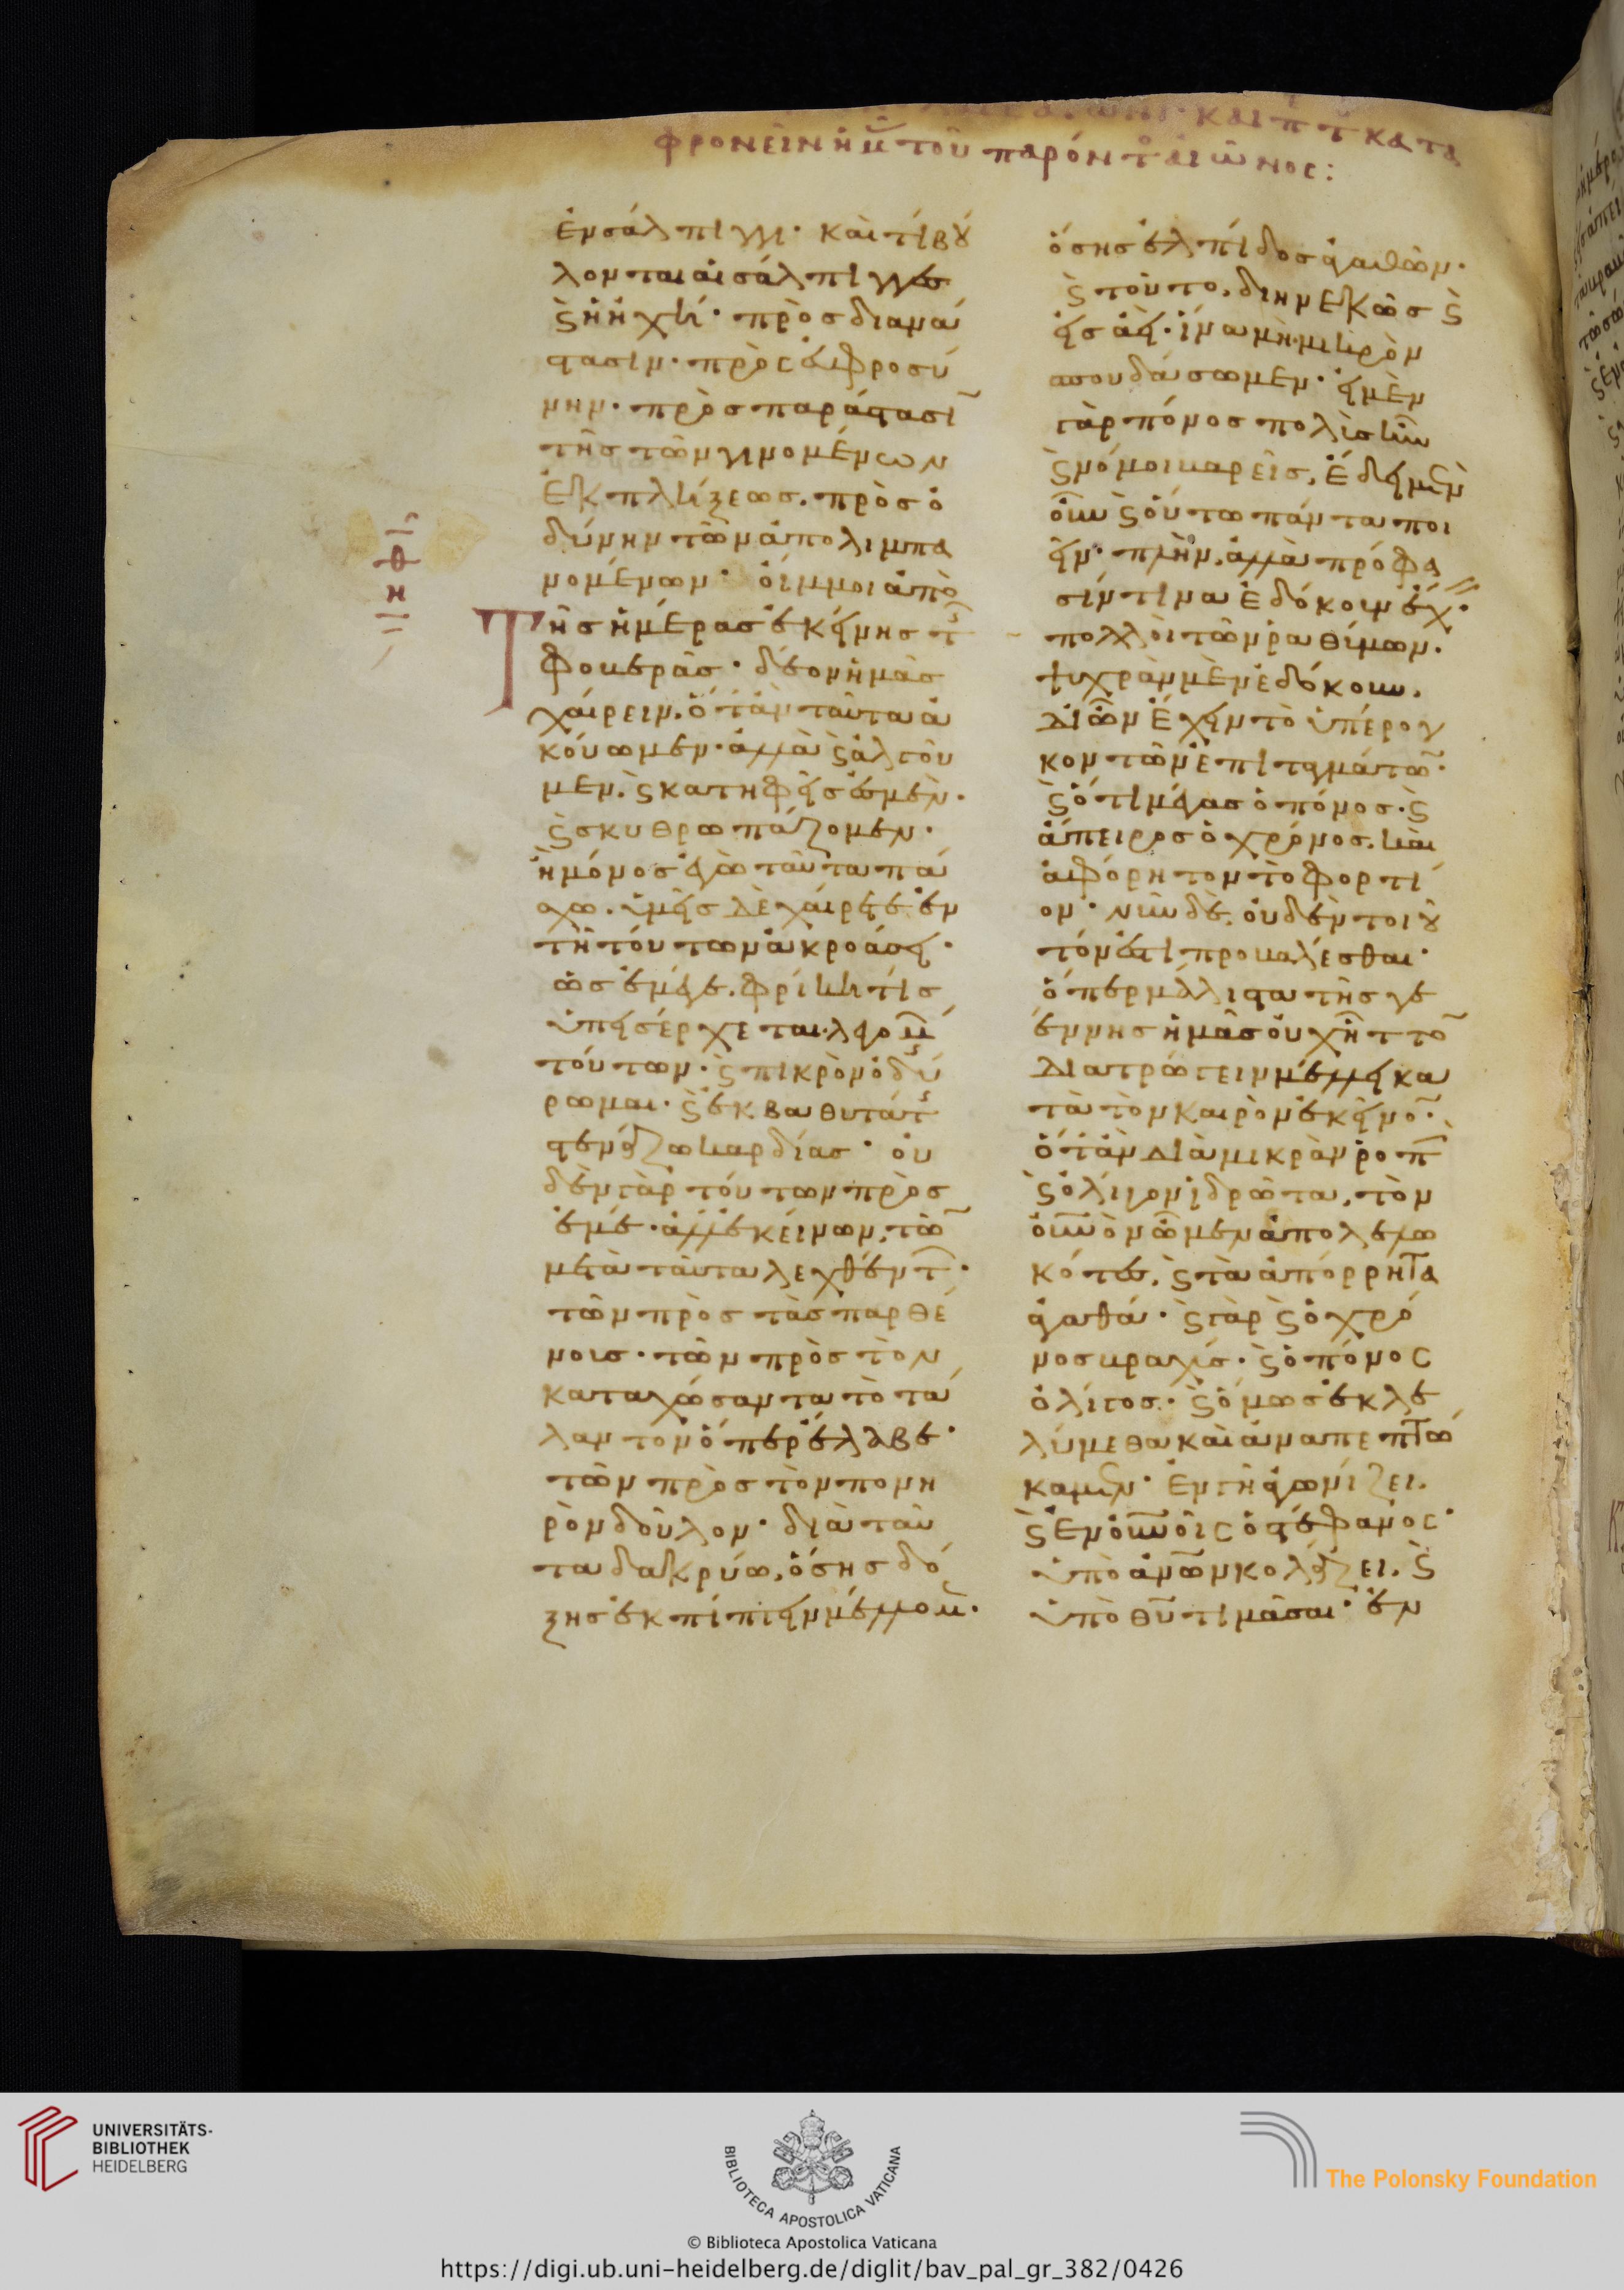 καὶ π τ κατα
φρονεῖν ἡμ τοῦ παρόντ αἰῶνος:
ἐν σάλπιγγι· καὶ τί βού
λονται αἱ σάλπιγγες
καὶ ἡ ἠχή· πρὸς διανά
στασιν· πρὸς εὐφροσύ
νην· πρὸς παράστασιν
τῆς τῶν γινομένων
ἐκπλήξεως. πρὸς ὀ
δύνην τῶν ἀπολιμπα
νομένων· οἴμμοι ἀπὸ
Τῆς ἡμέρας ἐκείνης τῆς
φοβερᾶς· δέον ἡμᾶς
χαίρειν. ὅταν ταῦτα ἀ
κούωμεν· ἀλλὰ καὶ ἀλγοῦ
μεν. καὶ κατηφεῖς ἐσμὲν.
καὶ σκυθρωπάζομεν.
ἢ μόνος ἐγὼ ταῦτα πά
σχω. ὑμεῖς δὲ χαίρετε ἐν
τῆ τούτων ἀκροάσει·
ὡς ἐμέ γε. φρίκη τίς
ὑπεισέρχεται λεγομέν
τούτων. καὶ πικρὸν ὀδύ
ρομαι. καὶ ἐκ βαθυτάτης
στενάζω καρδίας· οὐ
δὲν γὰρ τούτων πρὸς
ἐμέ. ἀλλ' ἐκείνων, τῶν
μετὰ ταῦτα λεχθέντ·
τῶν πρὸς τὰς παρθέ
νοις. τῶν πρὸς τὸν
καταχώσαντα τὸ τά
λαντον ὅπερ ἔλαβε·
τῶν πρὸς τὸν πονη
ρὸν δοῦλον· διὰ ταῦ
τα δακρύω, ὅσης δό
ξης ἐκπίπτειν μέλλομεν·
ὅσης ἐλπίδος ἀγαθῶν.
καὶ τοῦτο, διηνεκῶς καὶ
εἰς ἀεί. ἵνα μὴ μικρὸν
σπουδάσωμεν· εἰ μὲν
γὰρ πόνος πολὺς ἦν
καὶ νόμοι βαρεῖς, ἔδει μὲν
οὖν καὶ οὕτω πάντα ποι
εῖν· πλὴν, ἀλλὰ πρόφα
σίν τινα ἐδόκουν ἔχ·
πολλοὶ τῶν ῥαθύμων.
ψυχρὰν μὲν ἐδόκουν.
Δι' ὧν ἔχειν τὸ ὑπέρογ
κον τῶν ἐπιταγμάτων·
καὶ ὅτι μέγας ὁ πόνος. καὶ
ἄπειρος ὁ χρόνος. καὶ
ἀφόρητον τὸ φορτί
ον· νῦν δὲ, οὐδὲν τοιοῦ
τόν ἐστι προβαλέσθαι·
ὅπερ μάλιστα τῆς γε
έννης ἡμᾶς οὐχ ἧττον
Διατρώγειν μέλλει κα
τὰ τὸν καιρὸν ἐκεῖνον.
ὅταν διὰ μικρὰν ῥοπὴν
καὶ ὀλίγον ἱδρῶτα, τὸν
οὐνὸν ὦμεν ἀπολελω
κότες, καὶ τὰ ἀπόρρητα
ἀγαθά· καὶ γὰρ καὶ ὁ χρό
νος βραχύς. καὶ ὁ πόνος
ὀλίγος. καὶ ὅμως ἐκλε
λύμεθα καὶ ἀναπεπτώ
καμεν· Ἐν γῆ ἀγωνίζει.
καὶ ἐν οὐνοῖς ὁ στέφανος·
ὑπὸ ἀνῶν κολάζει. καὶ
ὑπὸ θυ τιμᾶσαι· ἐν
UNIVERSITÄTS-
BIBLIOTHEK
HEIDELBERG
BIBLIOTECA APOSTOLICA VATICANA
The Polonsky Foundation
© Biblioteca Apostolica Vaticana
https://digi.ub.uni-heidelberg.de/diglit/bav_pal_gr_382/0426